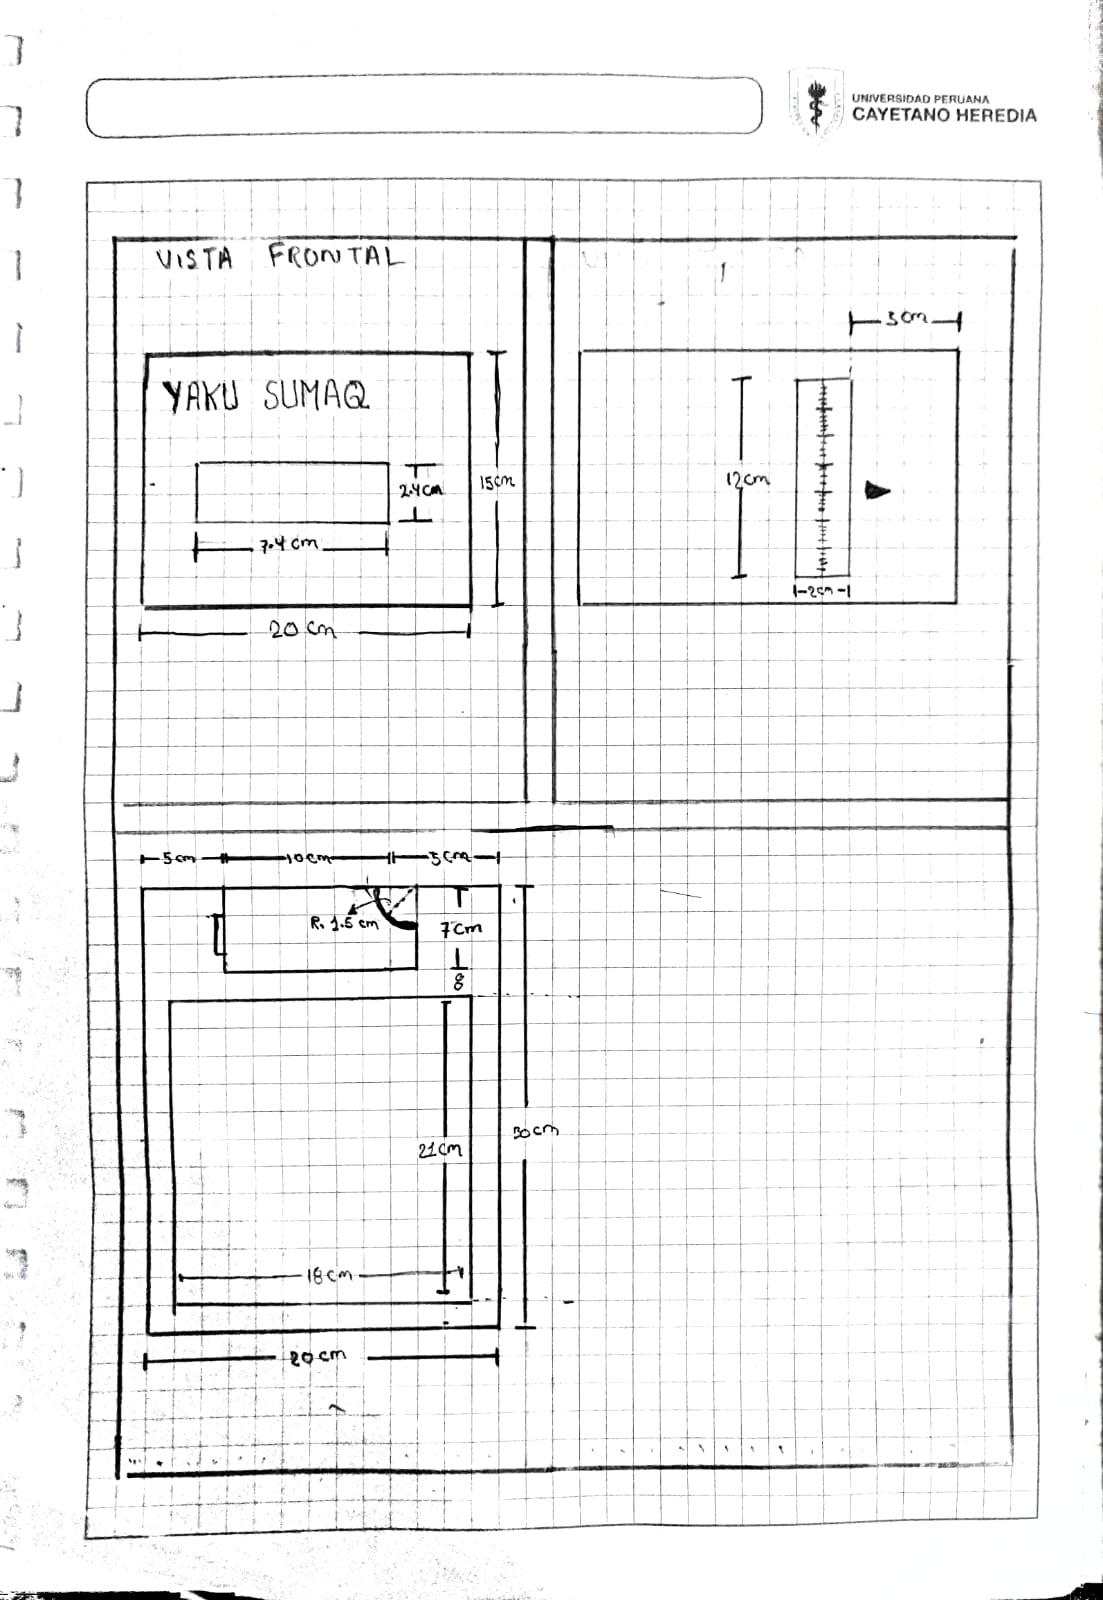 UNIVERSIDAD PERUANA
CAYETANO HEREDIA
VISTA FRONTAL
YAKU SUMAQ
2.4cm
7.4 cm
15cm
20 cm
3cm
12cm
2cm
5cm
10cm
5cm
R. 1.5 cm
7cm
8
21cm
30cm
18cm
20cm